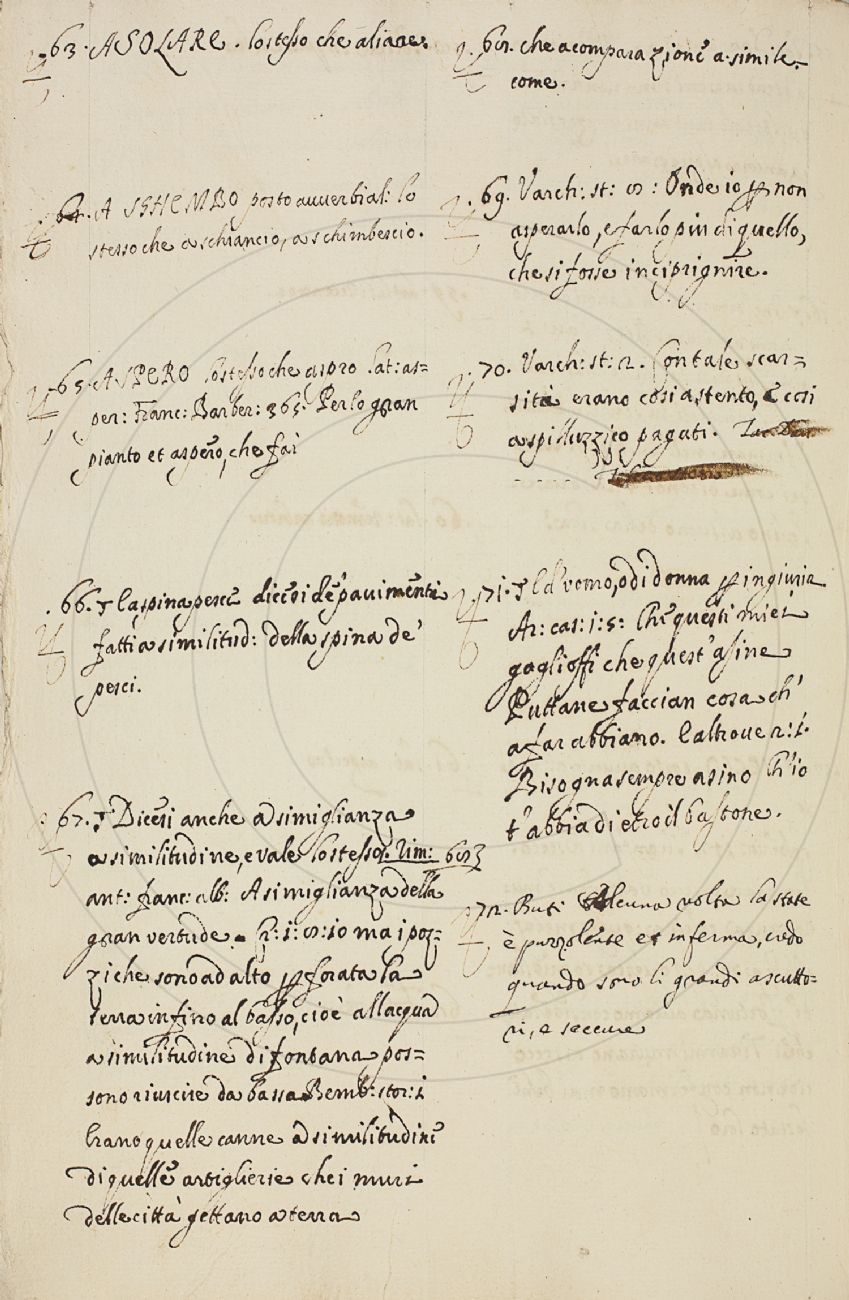 63. ASOLARE. lo stesso che aliare.
64. A SGHEMBO posto avverbial: lo
stesso che a schiancio, a schimbescio.
65. ASPERO lo stesso che aspro. Lat: as=
per: Franc: Barber: 365: Per lo gran
pianto et aspero, che fai
66. la spina pesce dicesi de' pavimenti
fatti a similitud: della spina de'
pesci.
67. Dicesi anche a simiglianza
a similitudine, e vale lo stesso. Rim:
ant: franc: alb: A simiglianza della
gran vertude. Cr: 1: 2: 10 ma i poz=
zi che sono ad alto perforata la
terra infino al basso, cioè all acqua
a similitudine di fontana pos=
sono riuscire da bassa Bemb: stor: 1
Erano quelle canne a similitudine
di quelle artiglierie che i muri
delle città gettano a terra
68. che a comparazione a simile
come.
69. Varch: st: 2: Onde io per non
asperarlo, e farlo più di quello,
che si fosse inciprignire.
70. Varch: st: 2. Con tale scar=
sità erano così a stento, e così
a spilluzzico pagati.
71. ad uomo, o di donna per ingiuria
Ar: cas: 1: 5: Che questi miei
gaglioffi che quest' asine
Puttane faccian cosa ch'
a far abbiano. E altrove 2: 1.
Bisogna sempre asino Ch'io
t'abbia dietro il bastone.
72. Buti Alcuna volta la state
è puzzolente et inferma, credo
quando sono li grandi asciutto=
ri, e seccure